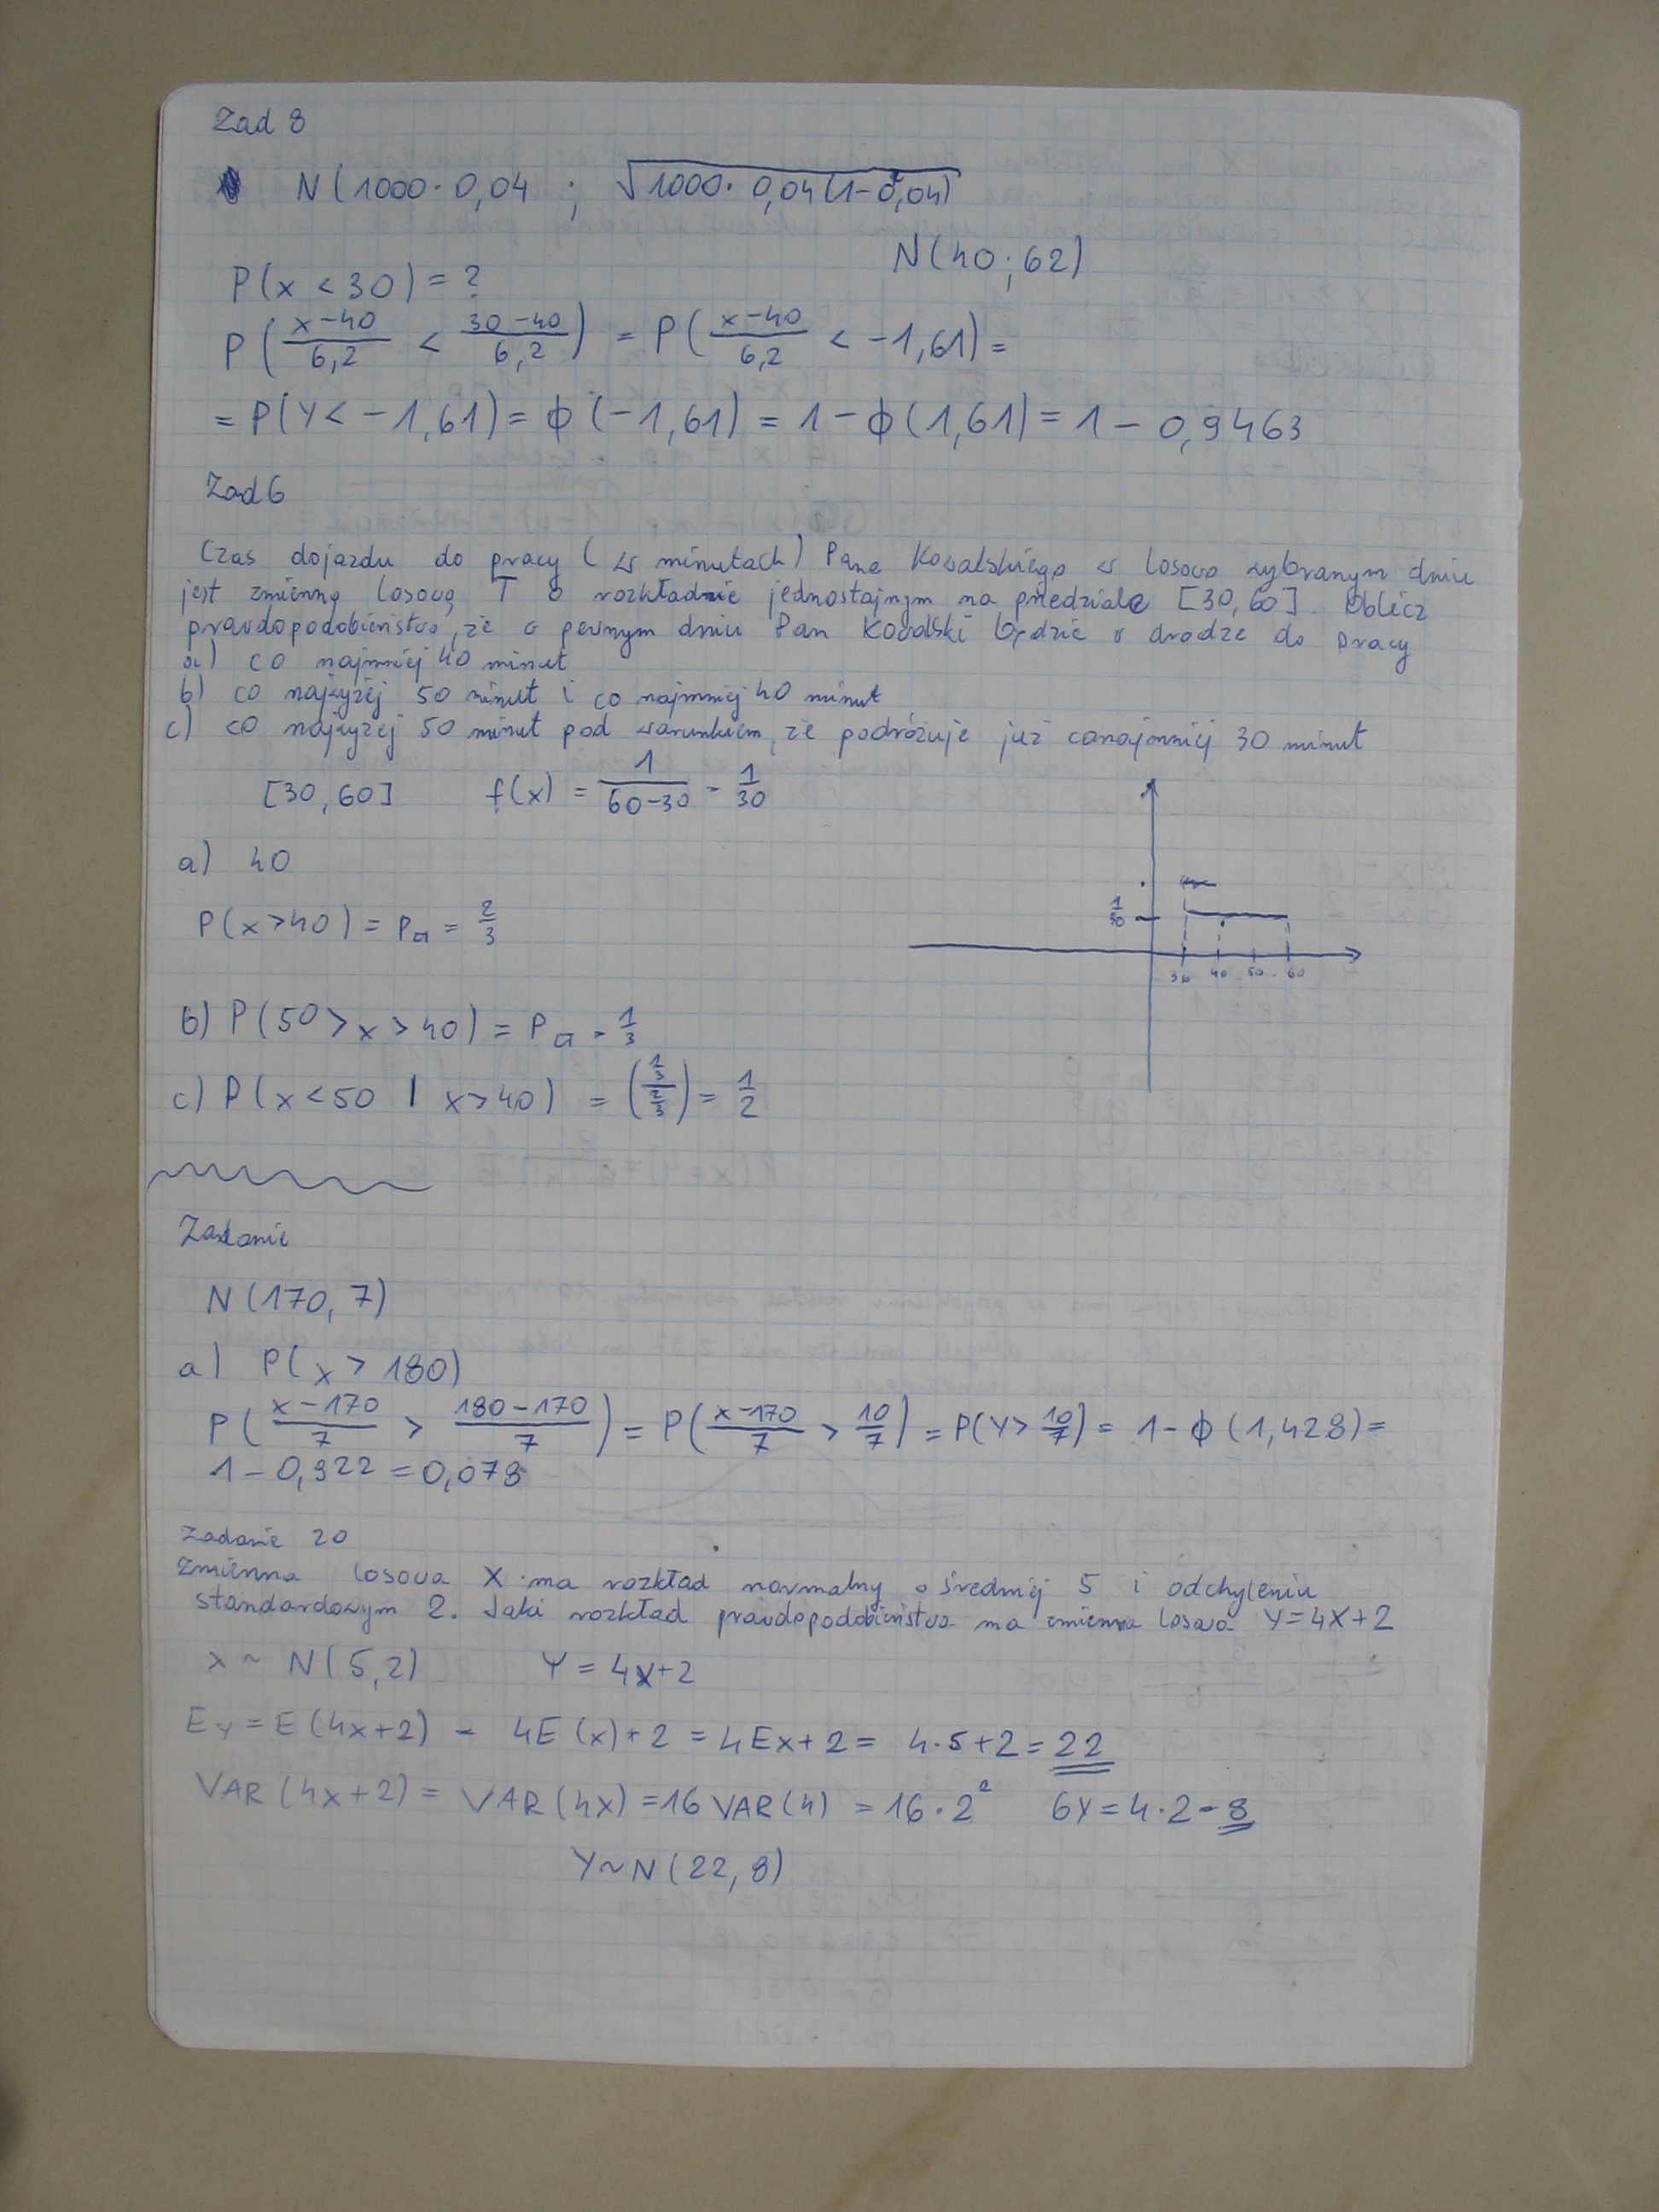 Zad 8
N(1000·0,04 ; √1000·0,04(1-0,04)
N(40; 62)
P(x < 30) = ?
P(x-40/6,2 < 30-40/6,2) = P(x-40/6,2 < -1,61) =
= P(Y < -1,61) = ϕ(-1,61) = 1 - ϕ(1,61) = 1 - 0,9463
Zad 6
Czas dojazdu do pracy (w minutach) Pana Kowalskiego w losowo wybranym dniu
jest zmienną losową T o rozkładzie jednostajnym na przedziale [30,60]. Oblicz
prawdopodobieństwo, że o pewnym dniu Pan Kowalski będzie w drodze do pracy
a) co najmniej 40 minut
b) co najwyżej 50 minut i co najmniej 40 minut
c) co najwyżej 50 minut pod warunkiem, że podróżuje już conajmniej 30 minut
[30,60] f(x) = 1/60-30 = 1/30
a) 40
1/30
30 40 50 60
P(x>40) = Pa = 2/3
b) P(50 > x > 40) = Pa = 1/3
c) P(x < 50 | x > 40) = (1/3 / 2/3) = 1/2
Zadanie
N(170, 7)
a) P(x > 180)
P(x-170/7 > 180-170/7) = P(x-170/7 > 10/7) = P(Y > 10/7) = 1 - ϕ(1,428) =
1 - 0,922 = 0,078
Zadanie 20
Zmienna losowa X ma rozkład normalny o średniej 5 i odchyleniu
standardowym 2. Jaki rozkład prawdopodobieństwa ma zmienna losowa Y=4X+2
x ~ N(5,2) Y = 4x+2
Ey = E(4x+2) = 4E(x)+2 = 4Ex+2 = 4·5+2 = 22
VAR(4x+2) = VAR(4x) = 16VAR(4) = 16·2² 6y = 4·2=8
Y~N(22,8)